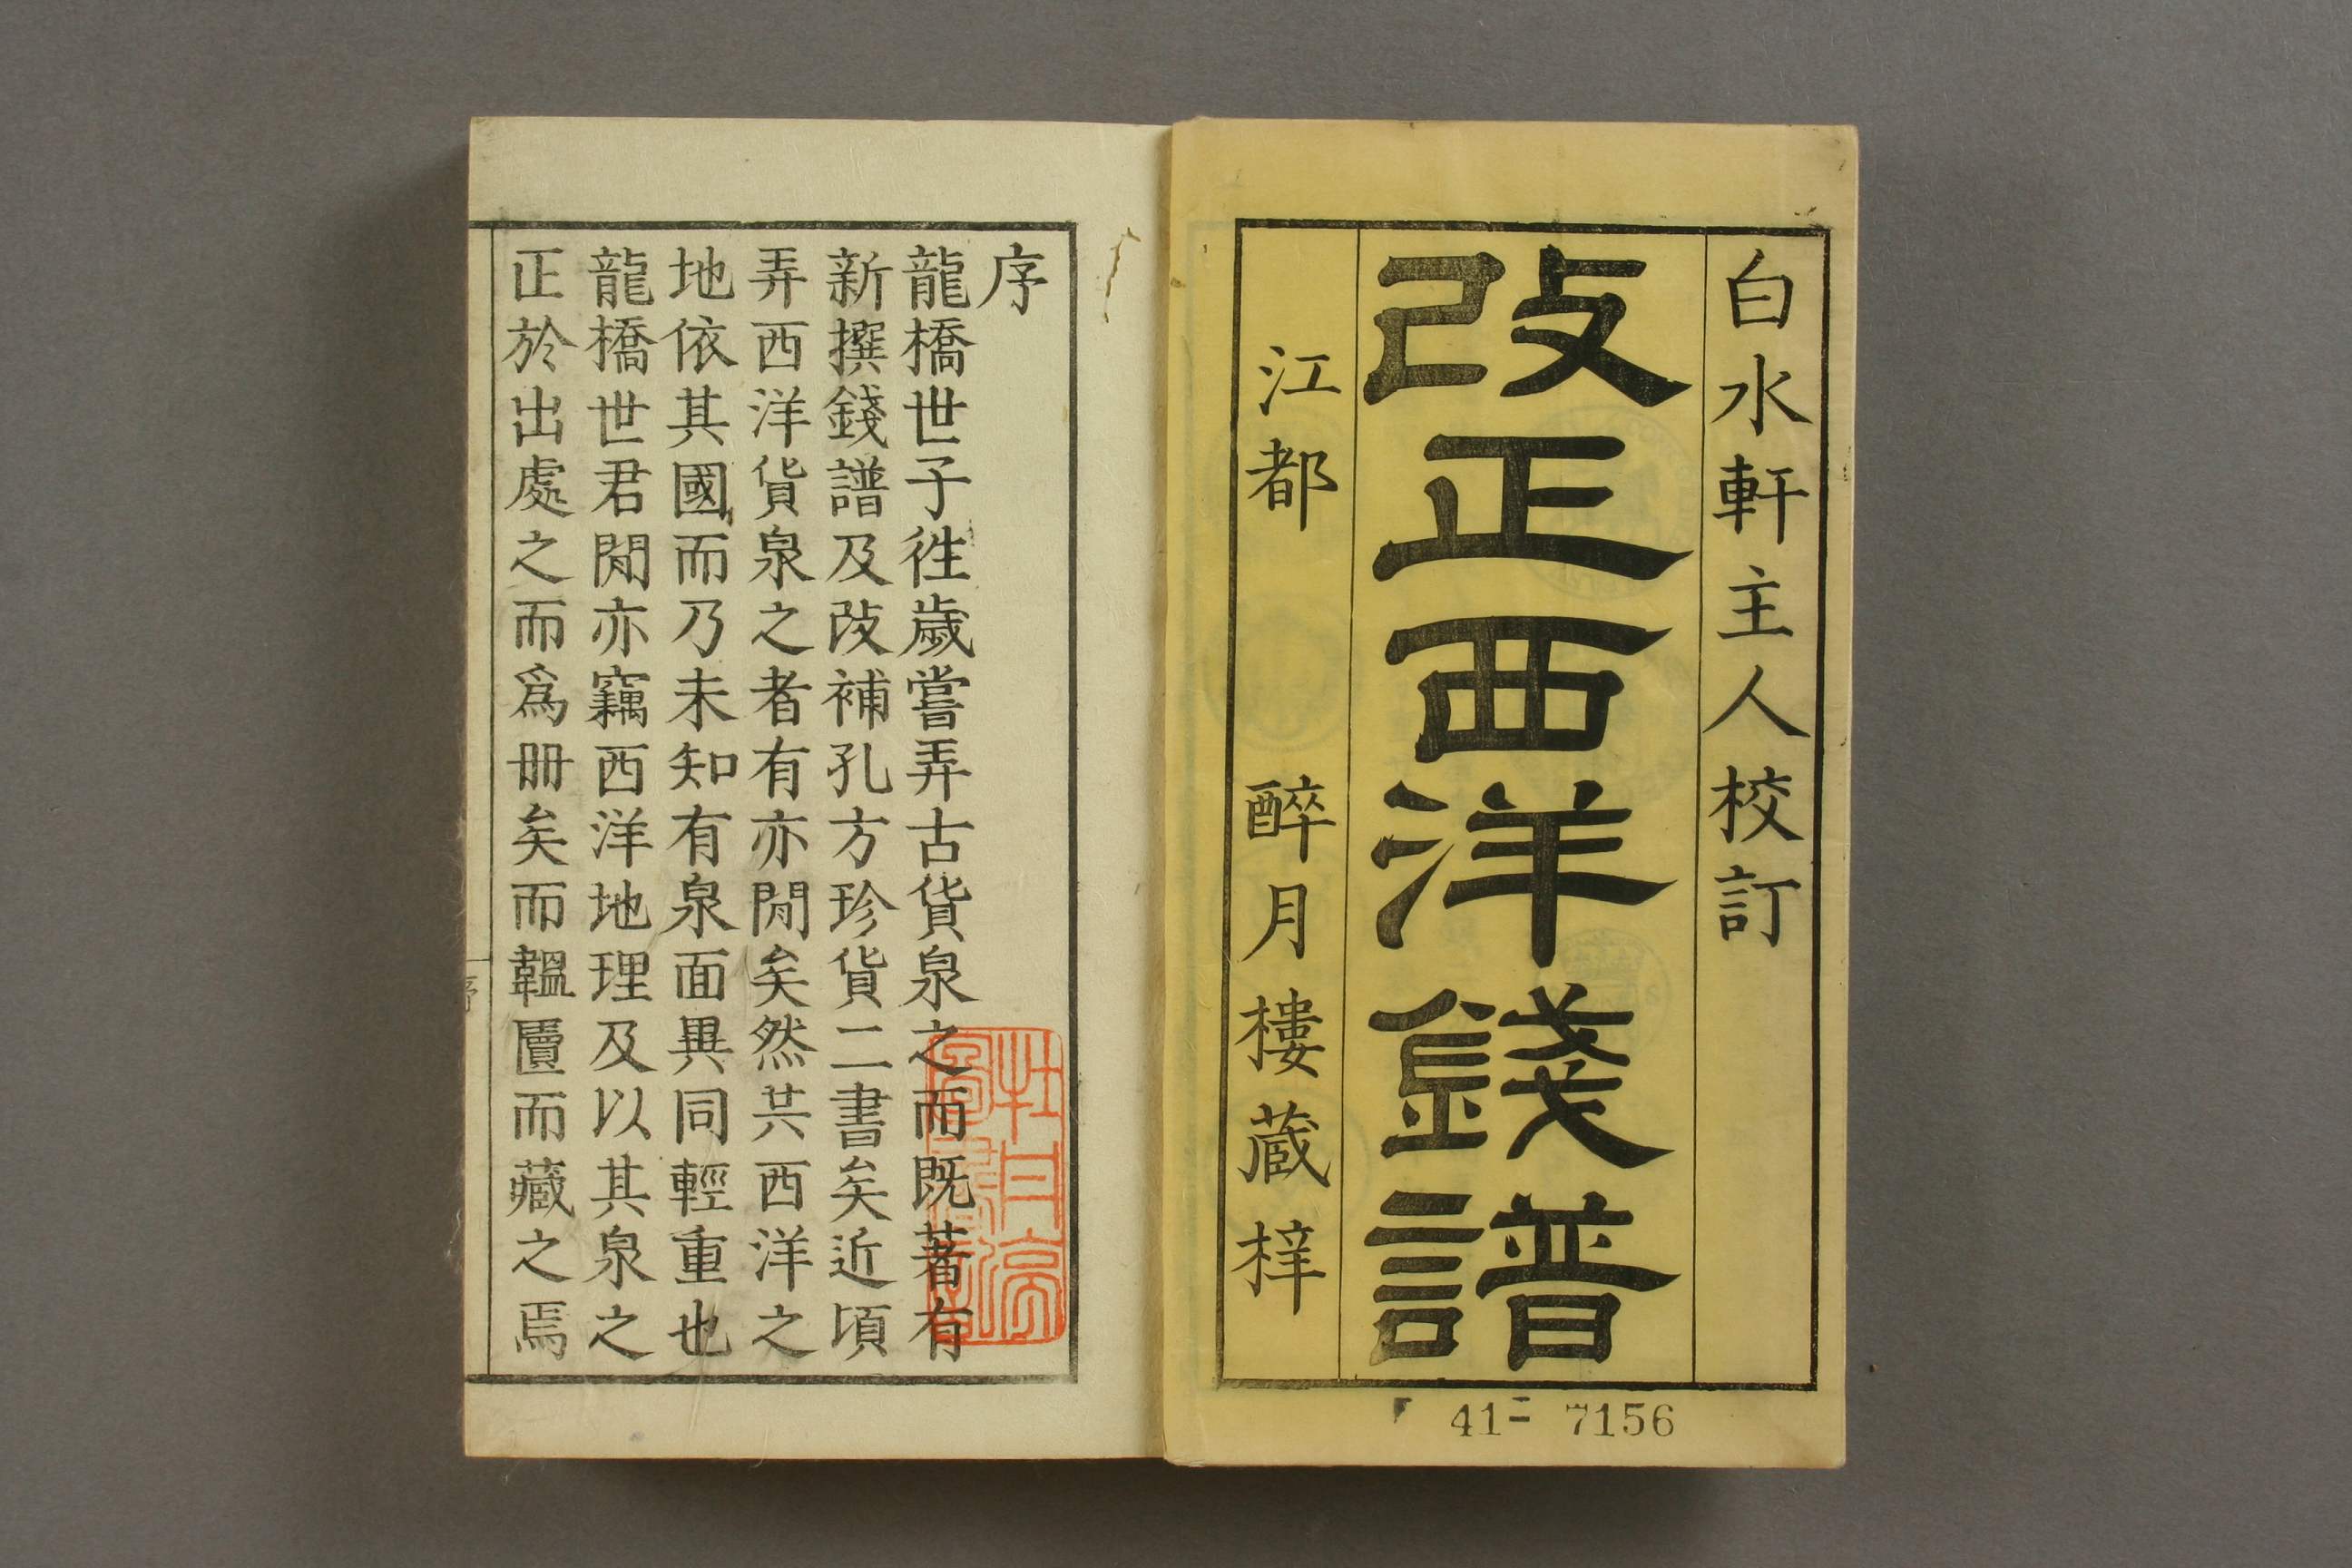 白水軒主人校訂
改正西洋錢譜
江都 醉月樓蔵梓
41- 7156
序
龍橋世子徃歲嘗弄古貨泉之而既著有
新撰錢譜及改補孔方珍貨二書矣近頃
弄西洋貨泉之者有亦閒矣然其西洋之
地依其國而乃未知有泉面異同輕重也
龍橋世君閒亦竊西洋地理及以其泉之
正於出處之而爲冊矣而韞匵而藏之焉
序